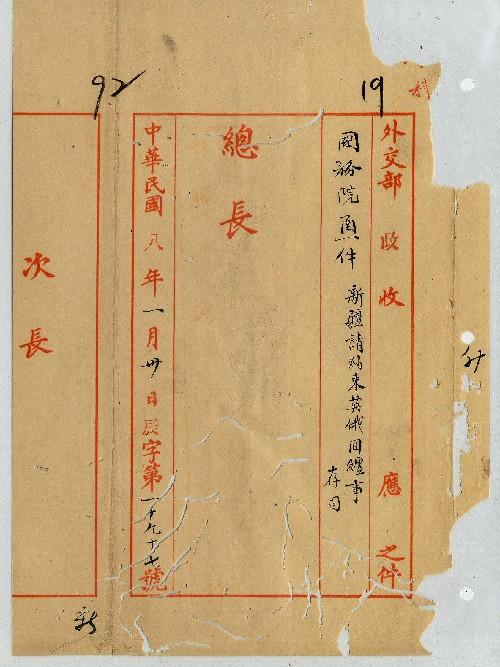 19
外交部 收 應 之件
國務院函件 新疆請約束英俄回纏事
存司
總長
中華民國八年一月卅日 字第一千九十七號
次長
92
新